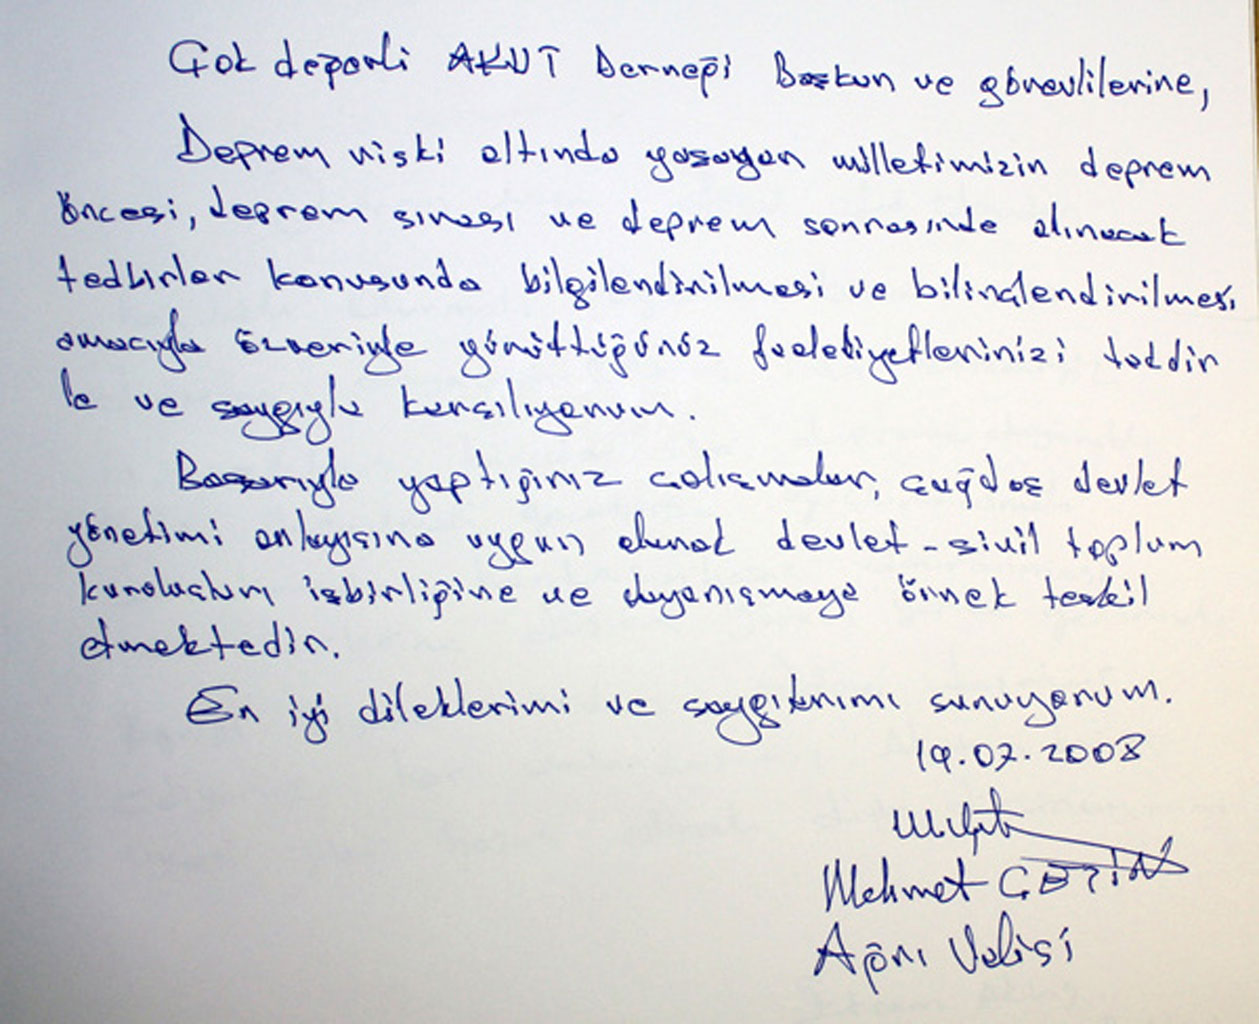 Çok değerli AKUT Derneği Başkan ve görevlilerine,
Deprem riski altında yaşayan milletimizin deprem
öncesi, deprem sırası ve deprem sonrasında alınacak
tedbirler konusunda bilgilendirilmesi ve bilinçlendirilmesi
amacıyla özveriyle yürüttüğünüz faaliyetlerinizi takdir
le ve saygıyla karşılıyorum.
Başarıyla yaptığınız çalışmalar, çağdaş devlet
yönetimi anlayışına uygun olarak devlet-sivil toplum
kuruluşları işbirliğine ve dayanışmaya örnek teşkil
etmektedir.
En iyi dileklerimi ve saygılarımı sunuyorum.
19.07.2008
Mehmet ÇETİN
Ağrı Valisi